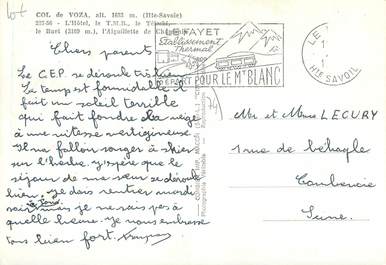 lot
COL de VOZA, alt. 1653 m. (Hte-Savoie)
227-56 - L'Hôtel, le T.M.B., le Tétrâs,
le Buet (3109 m.), l'Aiguillette de
Chers parents
Le C.E.P. se déroule très bien
Le temps est formidable il
fait un soleil terrible
qui fait fondre la neige
à une vitesse vertigineuse
Il va falloir songer à skier
sur l'herbe. J'espère que le
séjour de ma sœur se déroule
bien. Je dois rentrer mardi
soir mais je ne sais pas à
quelle heure. Je vous embrasse
tous bien fort.
LE FAYET
Etablissement
Thermal
DEPART POUR LE Mt BLANC
LE
Hte SAVOIE
74
Mr et Mme LECURY
1 rue de
Courbevoie
Seine